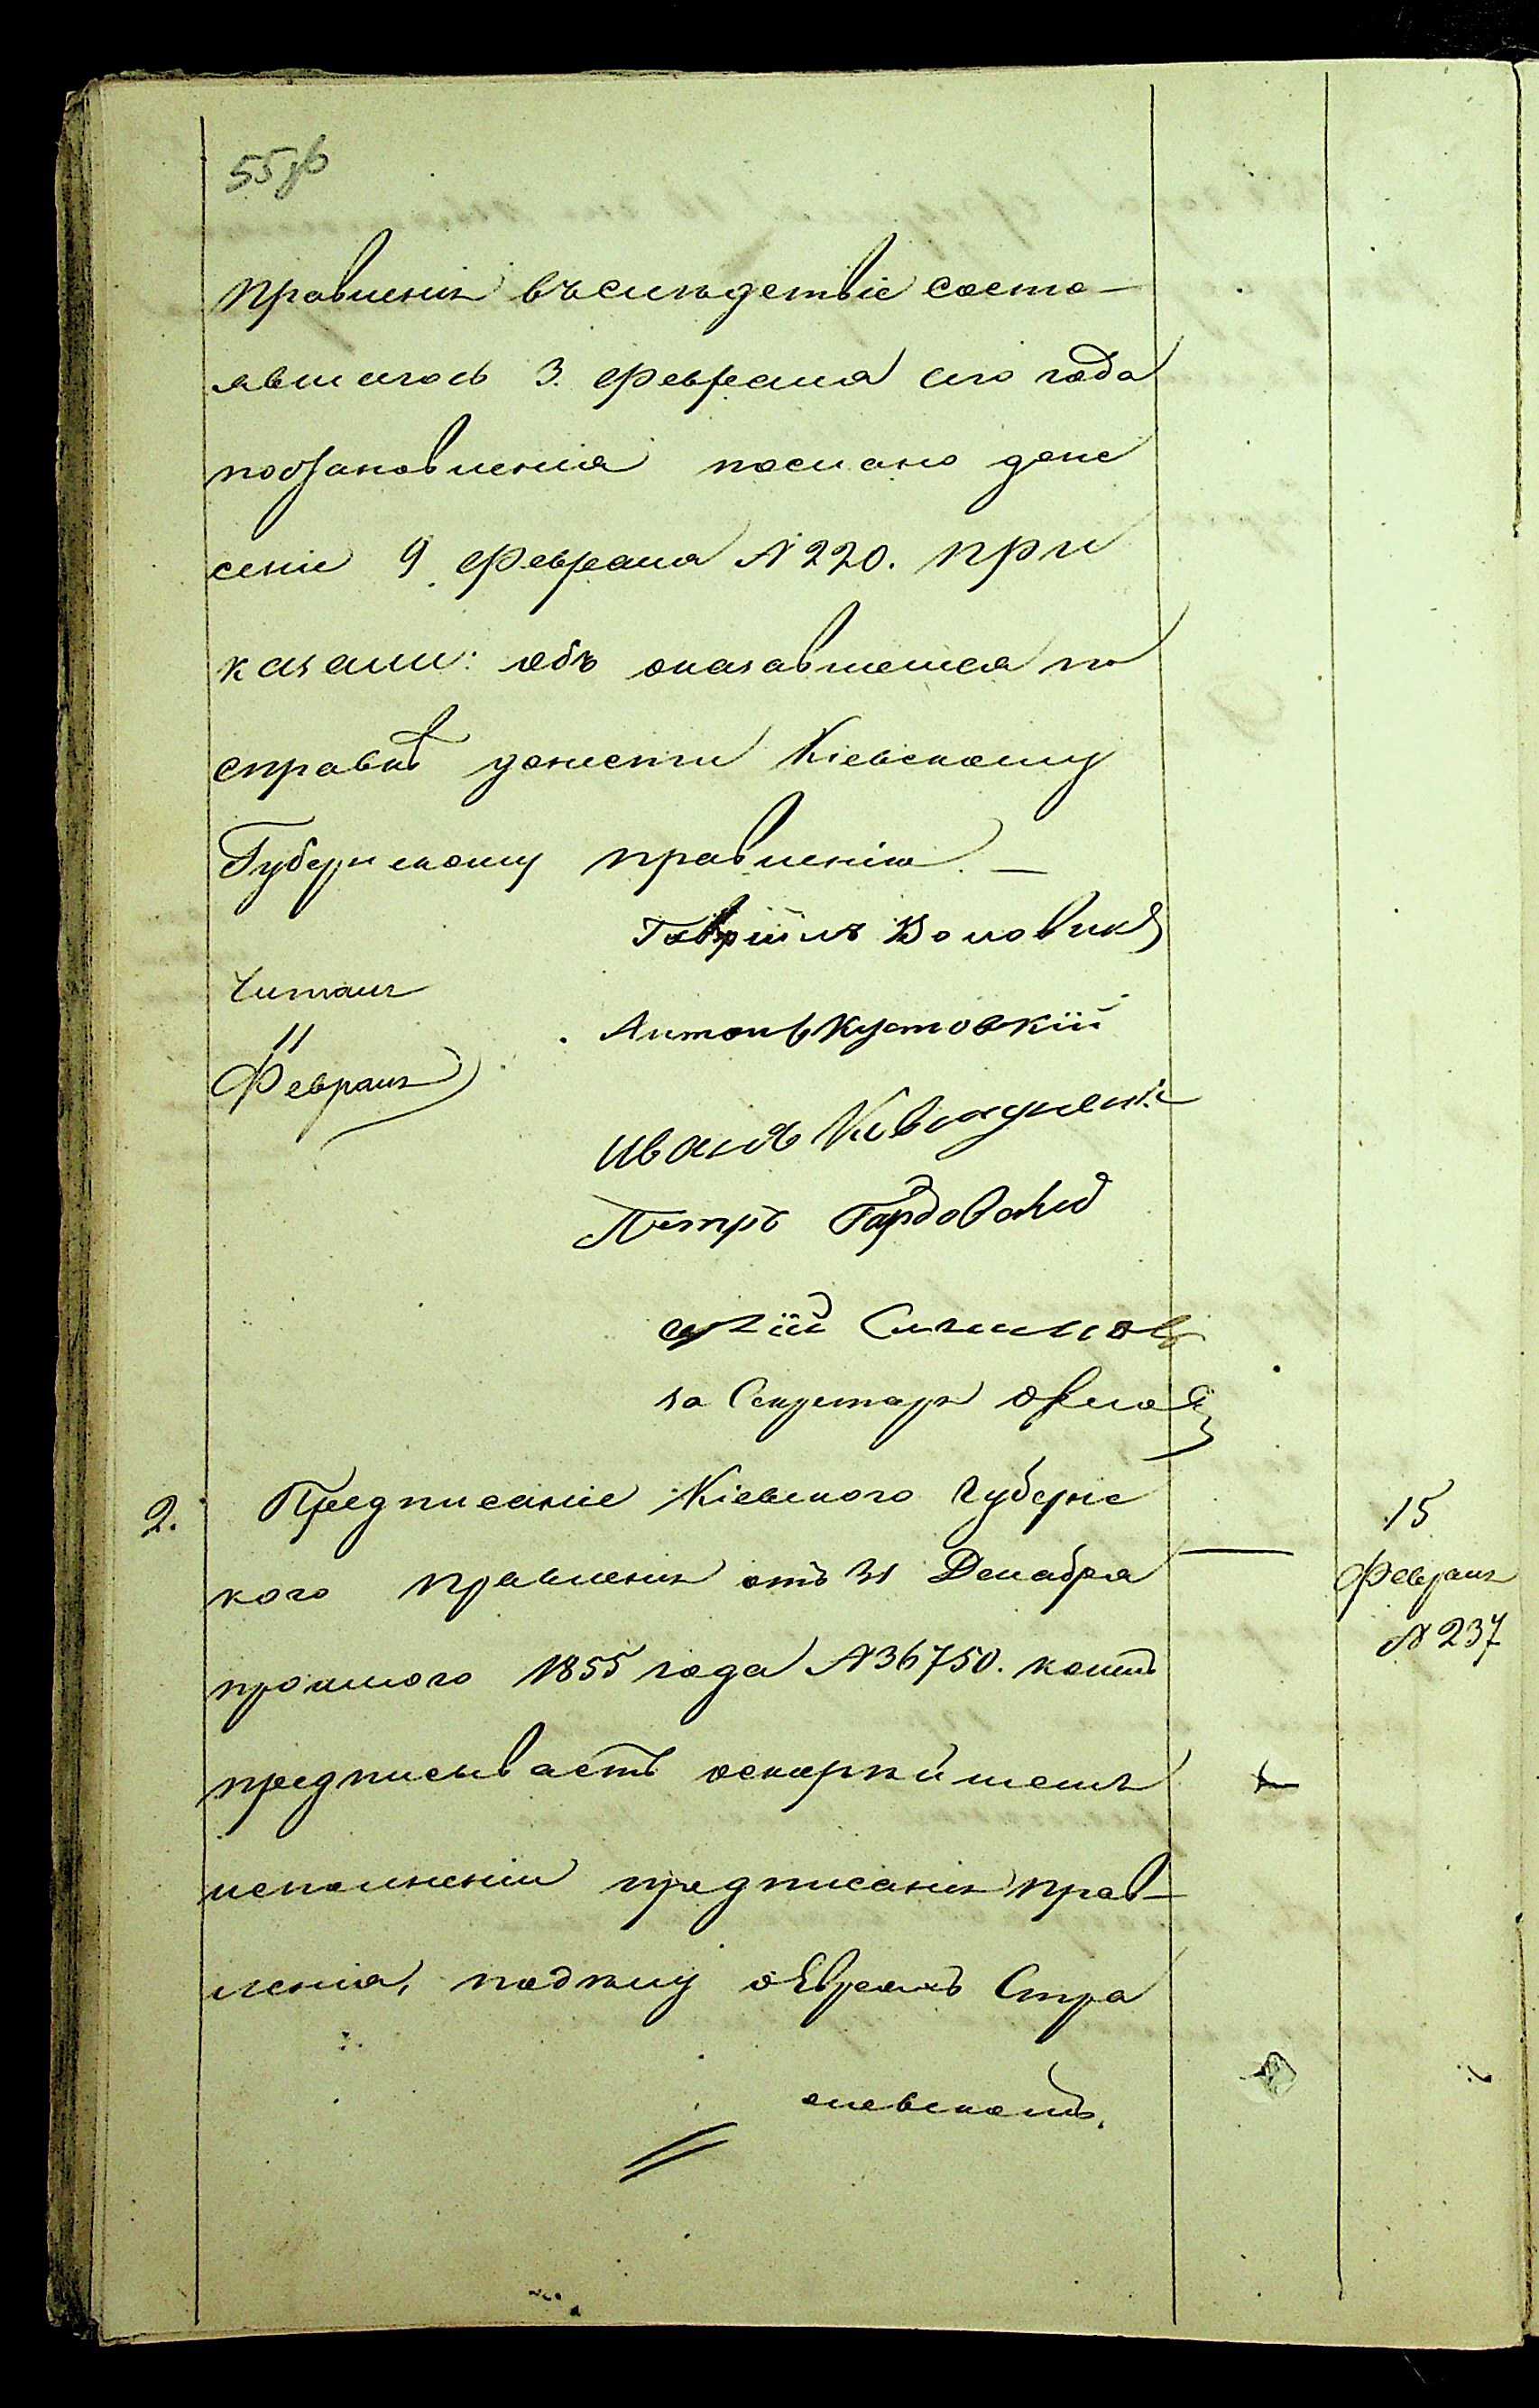 55об
правленія въслѣдствіе состо-
явшагось 3. Февраля сего года
постановленія послано доне
сеніе 9 Февраля №220. при
казали: объ оказавшемся по
справкѣ донести Кіевскому
Губернскому правленію. —
Гавріилъ
Читалъ
11
Февраля
Антонъ Кустовскій
Иванъ
Петръ
за Секретаря
2. Предписаніе Кіевского Губернс
кого правленія отъ 31 Декабря
прошлого 1855 года №36750. коимъ
предписываетъ оскорѣйшемъ
исполненіи предписанія прав-
ленія, по дѣлу о Евреяхъ Стра
15
Февраля
№ 237